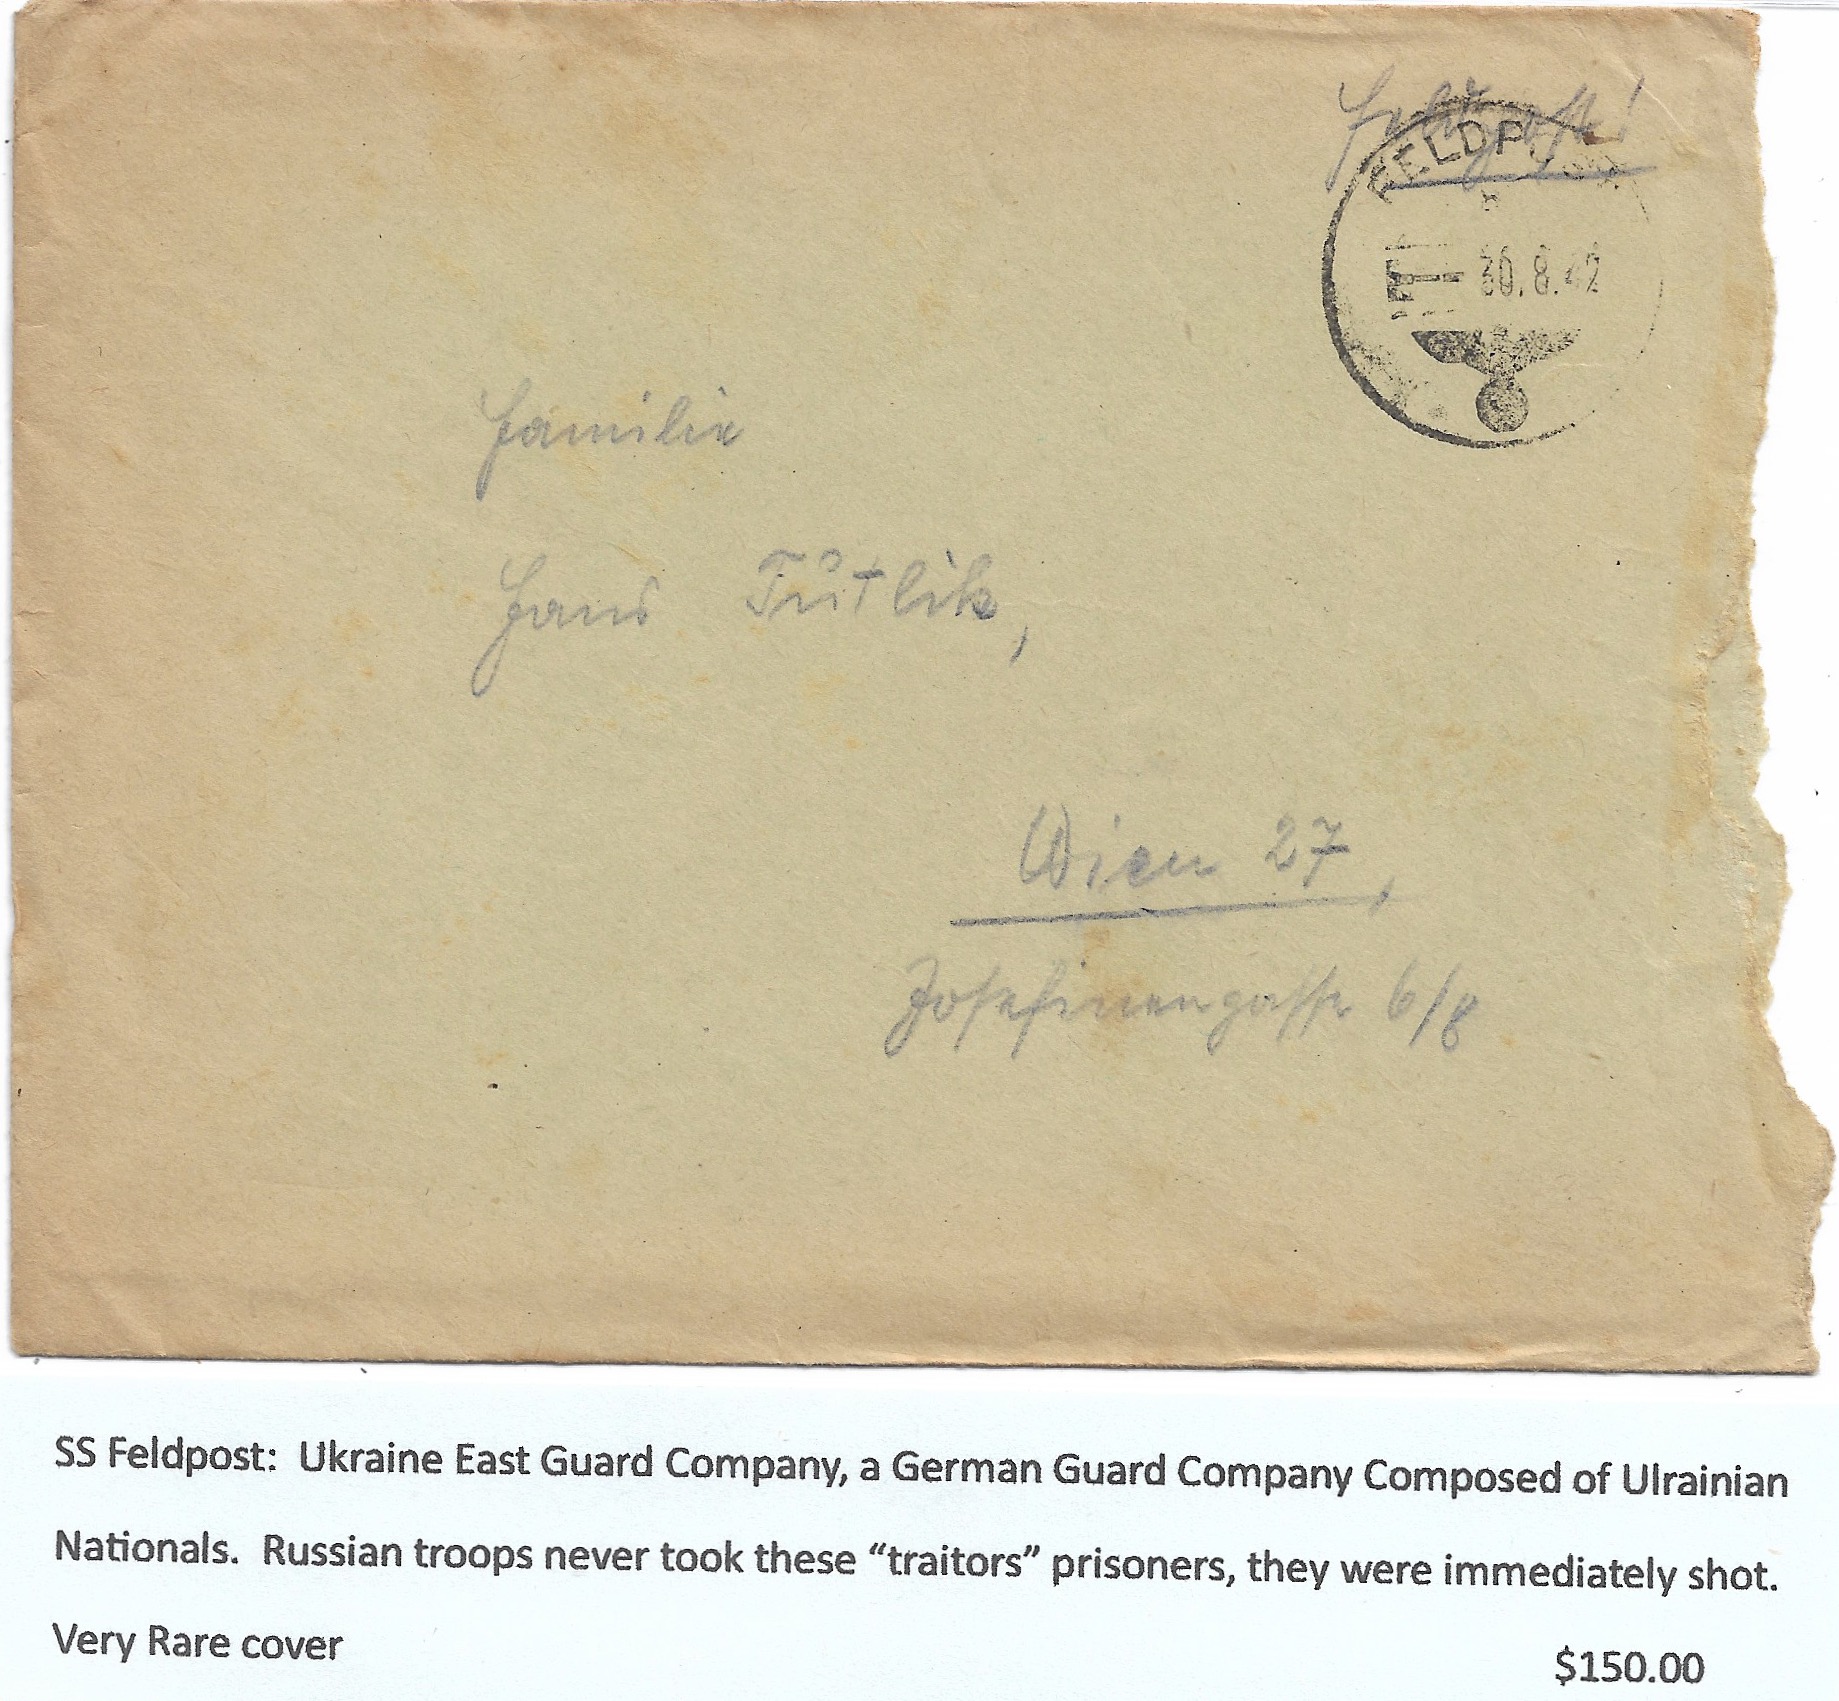 Feldpost!
FELDPOST
b
30.8.42
Familie
Hans Tütlik,
Wien 27,
Josefinengasse 6/8
SS Feldpost: Ukraine East Guard Company, a German Guard Company Composed of Ulrainian
Nationals. Russian troops never took these “traitors” prisoners, they were immediately shot.
Very Rare cover
$150.00